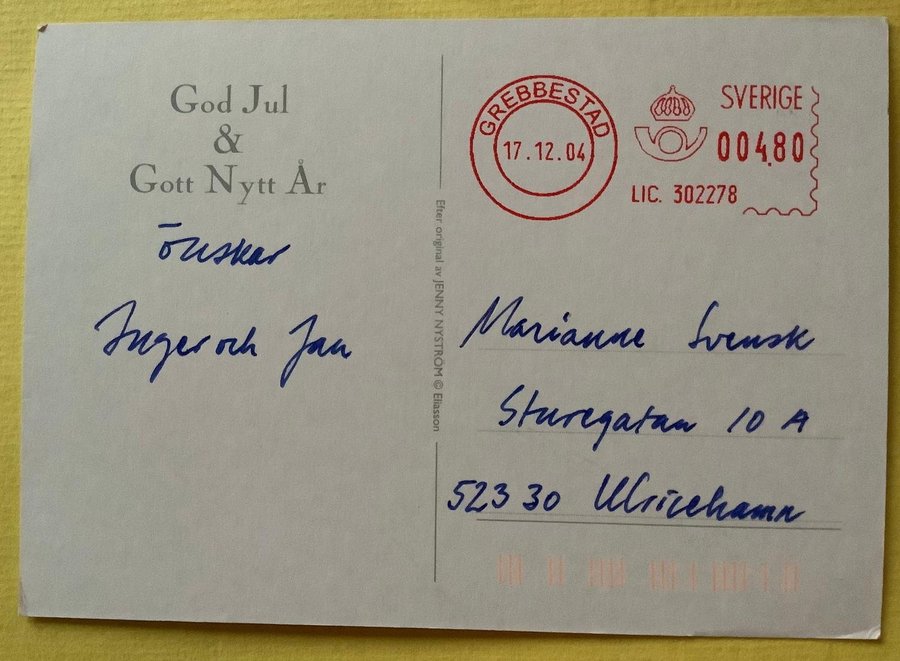 God Jul
&
Gott Nytt År
önskar
Inger och Jan
Efter original av JENNY NYSTRÖM © Eliasson
GREBBESTAD
17.12.04
SVERIGE
004,80
LIC. 302278
Marianne Svensk
Sturegatan 10 A
523 30 Ulricehamn